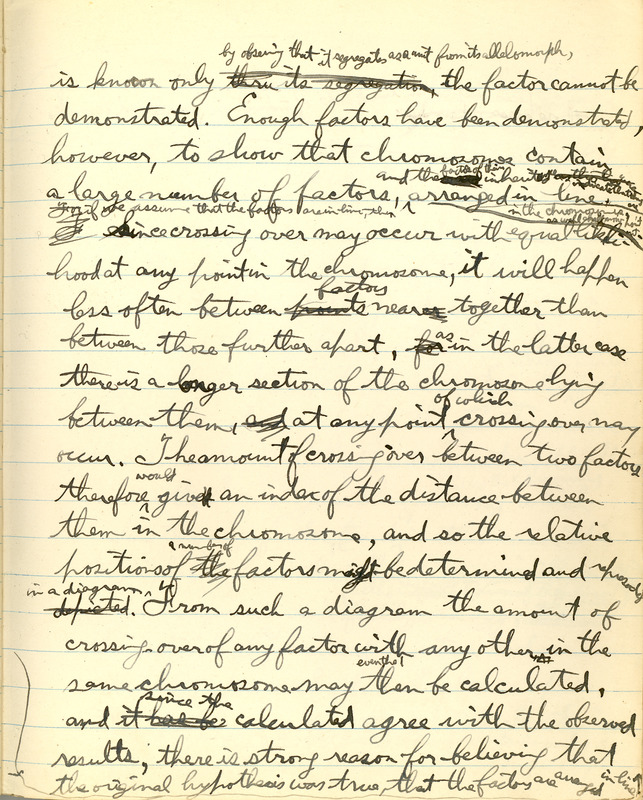 by observing that it segregates as a unit from its allelomorph,
is known only thru its segregation, the factor cannot be
demonstrated. Enough factors have been demonstrated,
however, to show that chromosomes contain
and the
a large number of factors, arranged in line.
For if we assume that the factors are in line, then
in the chromosome
since crossing over may occur with equal likli-
hood at any point in the chromosome, it will happen
factors
less often between points nearer together than
between those further apart, for as in the latter case
there is a longer section of the chromosome lying
of which
between them, and at any point crossing over may
occur. The amount of crossing over between two factors
would
therefore give an index of the distance between
them in the chromosome, and so the relative
a number of
positions of the factors might be determined and
in a diagram.
depicted. From such a diagram the amount of
crossing over of any factor with any other in the
same chromosome may then be calculated,
since the
and it has be calculated agree with the observed
results, there is strong reason for believing that
the original hypothesis was true, that the factors are arranged in line.